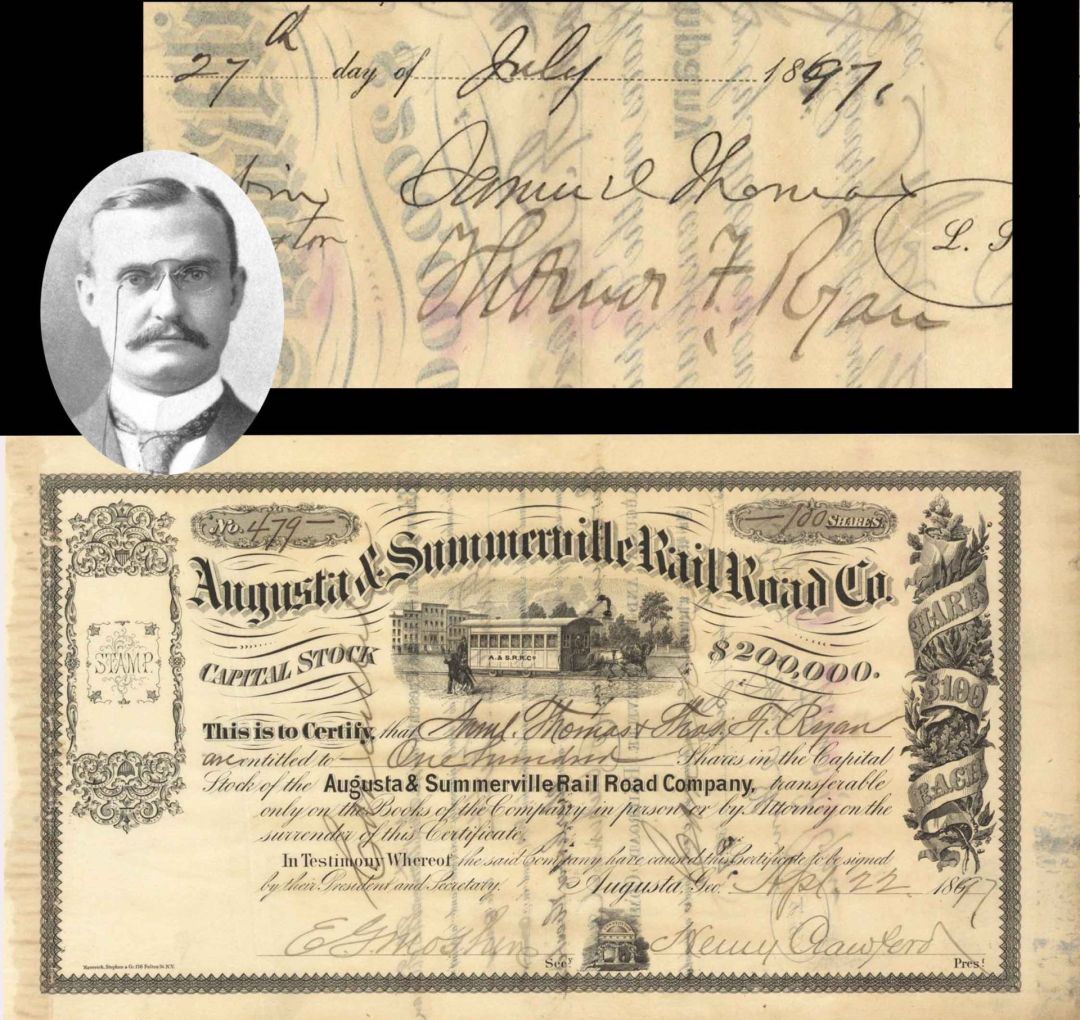 27th day of July 1897.
Samuel Thomas
Thomas F. Ryan
L. S
No. 479
100 SHARES
Augusta & Summerville Rail Road Co.
A. & S. R. R. Co
STAMP.
CAPITAL STOCK $200,000.
SHARES $100 EACH
This is to Certify, that Saml. Thomas & Thos. F. Ryan
are entitled to One Hundred Shares in the Capital
Stock of the Augusta & Summerville Rail Road Company, transferable
only on the Books of the Company in person or by Attorney on the
surrender of this Certificate.
In Testimony Whereof the said Company have caused this Certificate to be signed
by their President and Secretary.
Augusta, Geo. Apl. 22 1897
Secy
Henry Crawford
Prest